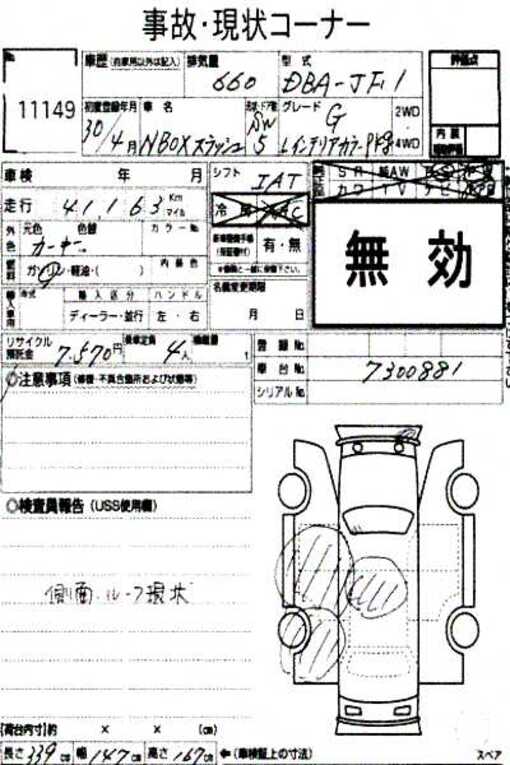 事故・現状コーナー
No.
11149
車歴 (自家用以外は記入)
排気量
660
型式
DBA-JF1
評価点
初度登録年月
30/4月
車名
NBOXスラッシュ
形状・ドア数
SW
5
グレード
G
Lインテリアカラーpkg
2WD
4WD
内装
車検 年 月
シフト
IAT
SR 純AW
カワ TV ナビ
走行
41,163
Km
マイル
冷房 AC
無効
外色
元色 色替
カラーNo.
カーキー
新車整備手帳
(保証書付)
有・無
※書類と一緒に保管下さい。
燃料
ガソリン・軽油・( )
内装色
名義変更期限
月 日
輸入車用
年式
輸入区分
ハンドル
ディーラー・並行
左・右
リサイクル
預託金
7,570円
乗車定員
4人
積載量
t
登録No.
車台No.
7300881
シリアルNo.
◎注意事項 (修復・不具合箇所および状態等)
◎検査員報告 (USS使用欄)
側面、ルーフ現状
[荷台内寸]約 × × (cm)
長さ339cm 幅147cm 高さ167cm ←(車検証上の寸法)
スペア